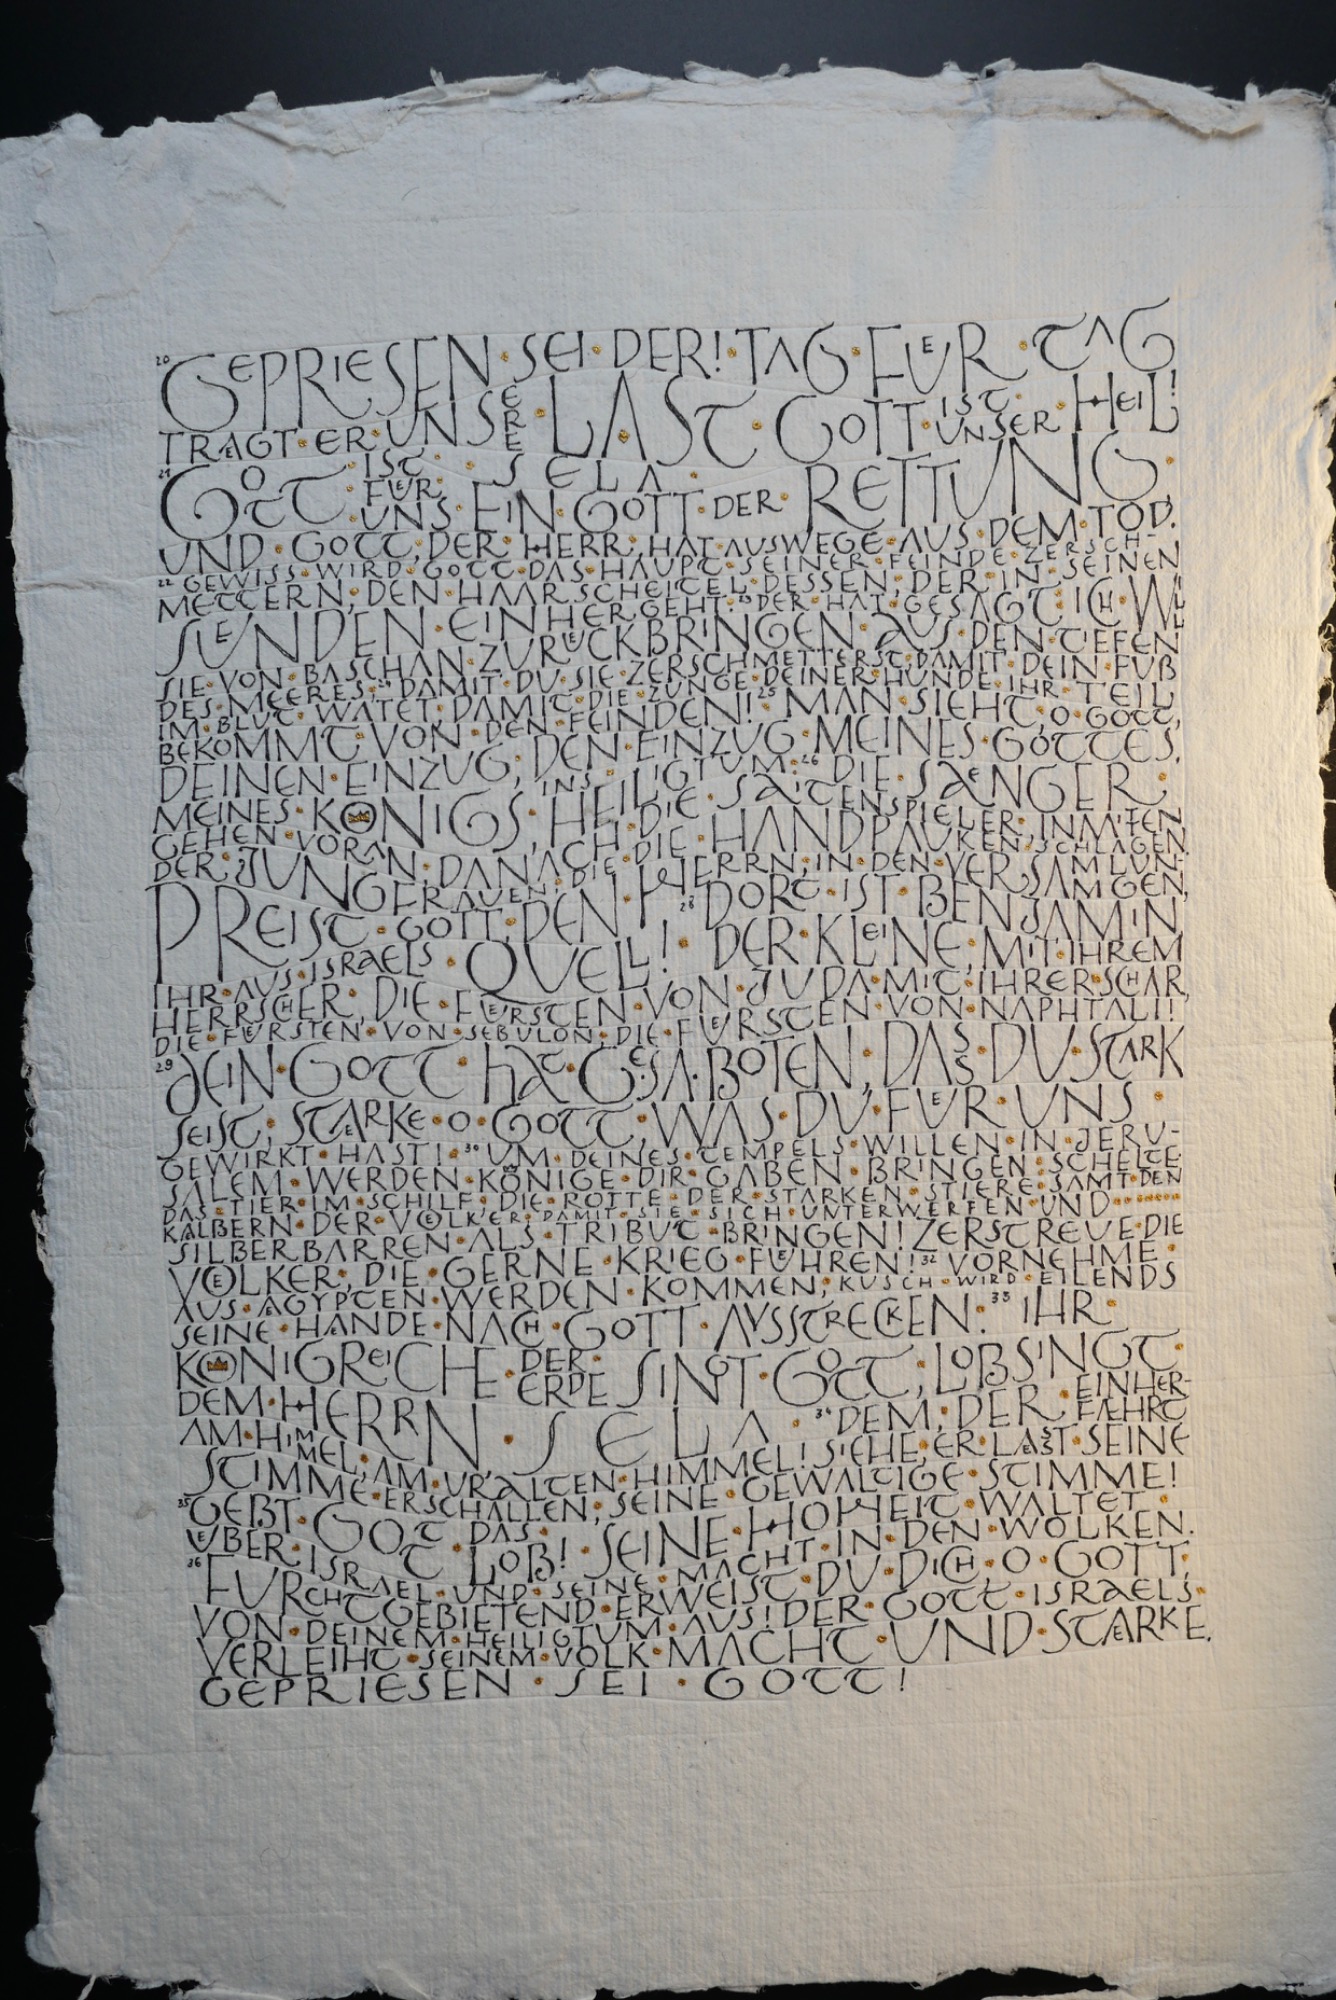 20 GEPRIESEN · SEI · DER! · TAG · FUER · TAG
TRAEGT · ER · UNSERE · LAST · GOTT · IST · UNSER · HEIL!
· SELA ·
21 GOTT · IST · FUER · UNS · EIN · GOTT · DER · RETTUNG ·
UND · GOTT, DER · HERR, HAT · AUSWEGE · AUS · DEM · TOD.
22 GEWISS · WIRD · GOTT · DAS · HAUPT · SEINER · FEINDE · ZERSCH-
METTERN, DEN · HAARSCHEITEL · DESSEN, DER · IN · SEINEN
SUENDEN · EINHERGEHT. 23 DER · HAT · GESAGT · ICH · WILL
SIE · VON · BASCHAN · ZURUECKBRINGEN · AUS · DEN · TIEFEN
DES · MEERES, 24 DAMIT · DU · SIE · ZERSCHMETTERST, DAMIT · DEIN · FUß
IM · BLUT · WATET, DAMIT · DIE · ZUNGE · DEINER · HUNDE · IHR · TEIL
BEKOMMT · VON · DEN · FEINDEN! 25 MAN · SIEHT, O · GOTT,
DEINEN · EINZUG, DEN · EINZUG · MEINES · GOTTES,
MEINES · KÖNIGS, INS · HEILIGTUM. 26 DIE · SAENGER ·
GEHEN · VORAN, DANACH · DIE · SAITENSPIELER, INMITTEN
DER · JUNGFRAUEN, DIE · DIE · HANDPAUKEN · SCHLAGEN
PREIST · GOTT, DEN · HERRN, IN · DEN · VERSAMLUN-
GEN,
IHR · AUS · ISRAELS · QUELL! 28 DORT · IST · BENJAMIN,
DER · KLEINE, MIT · IHREM
HERRSCHER, DIE · FUERSTEN · VON · JUDA · MIT · IHRER · SCHAR,
DIE · FUERSTEN · VON · SEBULON, DIE · FUERSTEN · VON · NAPHTALI!
29 DEIN · GOTT · HAT · GESA · BOTEN, DASS · DU · STARK
SEIST, STAERKE · O · GOTT, WAS · DU · FUER · UNS ·
GEWIRKT · HAST! 30 UM · DEINES · TEMPELS · WILLEN · IN · JERU-
SALEM · WERDEN · KÖNIGE · DIR · GABEN · BRINGEN · SCHELTE
DAS · TIER · IM · SCHILF · DIE · ROTTE · DER · STARKEN · STIERE · SAMT · DEN
KAELBERN · DER · VOELKER · DAMIT · SIE · SICH · UNTERWERFEN · UND
SILBERBARREN · ALS · TRIBUT · BRINGEN! ZERSTREUE · DIE
VOELKER, DIE · GERNE · KRIEG · FUEHREN! 32 VORNEHME ·
AUS · AEGYPTEN · WERDEN · KOMMEN, KUSCH · WIRD · EILENDS
SEINE · HAENDE · NACH · GOTT · AUSSTRECKEN. 33 IHR ·
KÖNIGREICHE · DER · ERDE · SINGT · GOTT, LOBSINGT ·
DEM · HERRN · SELA · 34 DEM, DER · EINHER-
FAEHRT
AM · HIMMEL, AM · URALTEN · HIMMEL! SIEHE, ER · LAESST · SEINE
STIMME · ERSCHALLEN, SEINE · GEWALTIGE · STIMME!
35 GEBT · GOTT · DAS · LOB! SEINE · HOHEIT · WALTET ·
UEBER · ISRAEL · UND · SEINE · MACHT · IN · DEN · WOLKEN.
36 FURCHTGEBIETEND · ERWEIST · DU · DICH, O · GOTT,
VON · DEINEM · HEILIGTUM · AUS! DER · GOTT · ISRAELS ·
VERLEIHT · SEINEM · VOLK · MACHT · UND · STAERKE.
GEPRIESEN · SEI · GOTT!